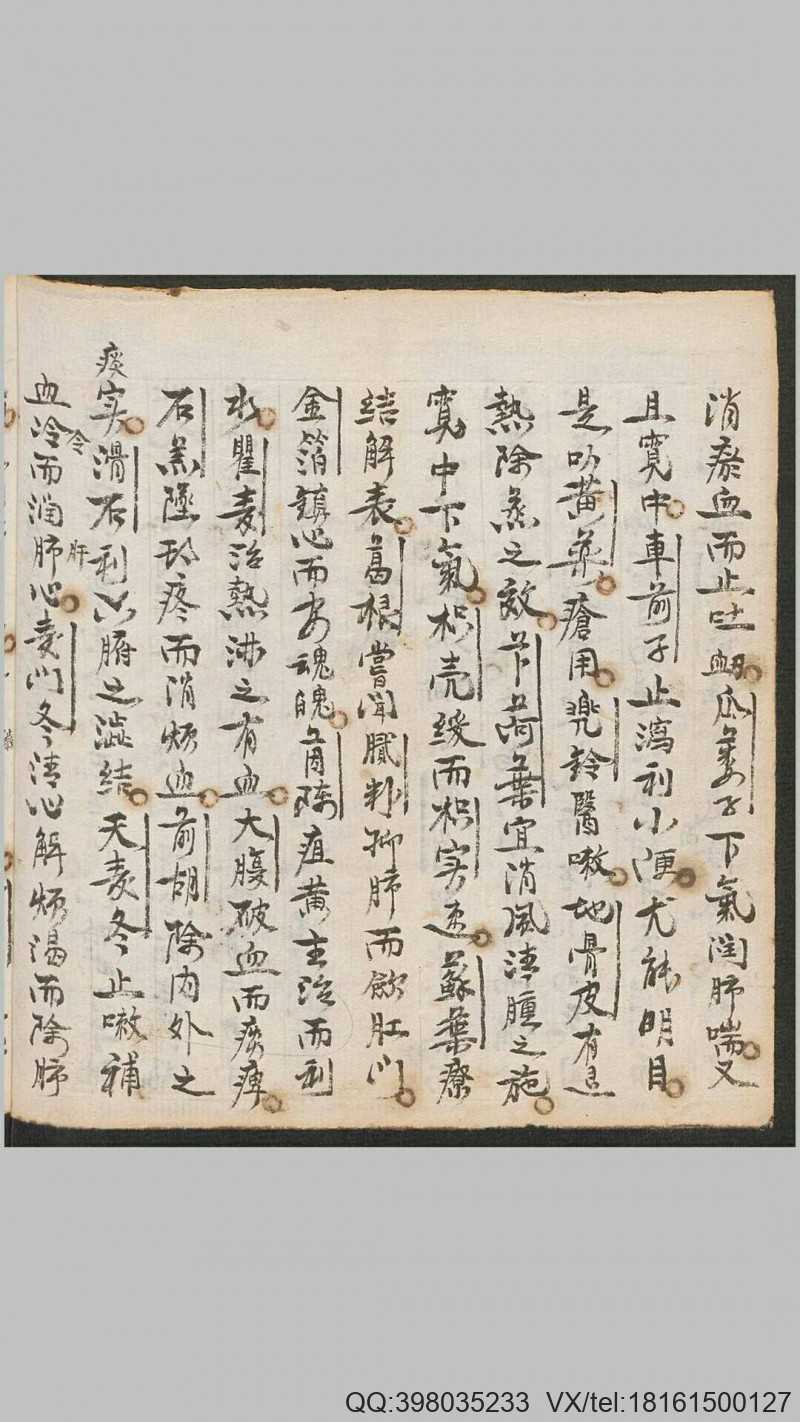 消瘀血而止吐衄瓜蔞子下氣润肺喘又
且寬中車前子止瀉利小便尤能明目
是叻黄蘗瘡用兜鈴醫嗽地骨皮有退
熱除蒸之效荷葉宜消風清腫之施
寬中下氣枳壳緩而枳实速蘇葉療
結解表葛根嘗聞膩粉抑肺而歛肛门
金箔鎮心而安魂魄茵陳疸黄主治而利
水瞿麦治熱淋之有血大腹破血而痰痺
石羔墜疼而消烦血前胡除内外之
痰实滑石利六腑之澁结天麦冬止嗽補
血冷而润肺心麦门冬清心解烦渴而除肺
令
肝
QQ:398035233 VX/tel:18161500127